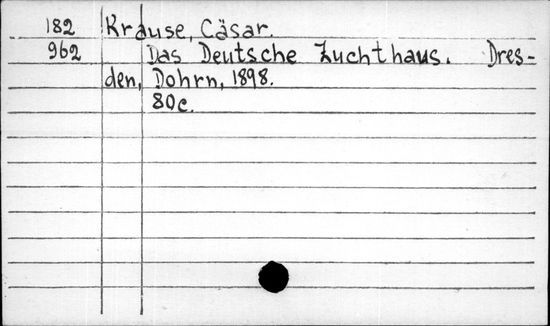 182 Krause, Cäsar.
962 Das Deutsche Zuchthaus. Dres-
den, Dohrn, 1898.
80c.